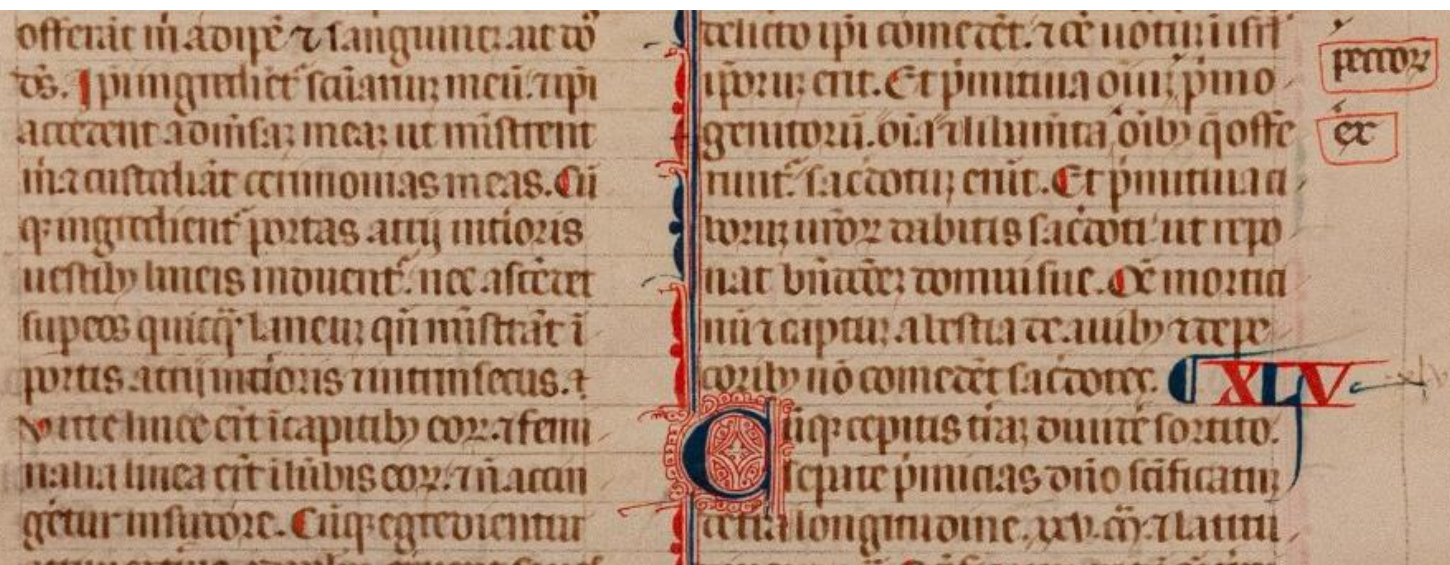 offerāt m̄ adipē ⁊ sanguinē: ait dō
ds̄. Ipi ingrediēt᷑ sc̄iariuꝫ meū: ⁊ ipi
accedent ad mēsaꝫ meaꝫ ut mīstrent
m̄ ⁊ custodiāt cerimonias meas. Cū
qꝫ ingredient᷑ portas atrij int̄ioris
uestibꝫ lineis induent᷑. nec ascēdet
sup eos quicq̄ laneuꝫ qn̄ mīstrāt ī
portis atrij int̄ioris ⁊ intrinsecus. ⁊
Vitte linee er̄t ī capitibꝫ eoꝝ. ⁊ femi
nalia linea er̄t ī lūbis eoꝝ. ⁊ n̄ accin
gētur in sudore. Cūqꝫ egredientur
delicto ipi comedēt. ⁊ oē uotuꝫ isrl
ip̄oruꝫ erit. Et p̍mitiua oiūꝫ p̍mo
genitorū. oīa ⁊ libamīta oībꝫ q̄ offe
runt᷑. sac̄dotuꝫ erūt. Et p̍mitiua ci
boruꝫ ur̄oꝝ dabitis sac̄doti ut repo
nat bn̄dcōeꝫ domui sue. Oē mortici
nū ⁊ captuꝫ a bestia de auibꝫ ⁊ de pe
coribꝫ nō comedēt sac̄dotes. XLV
Cūqꝫ cepitis tr̄aꝫ diuidē sortito.
sepate p̍micias dn̄o sc̄ificatuꝫ
de tr̄a longitudine. xxv. m̄. ⁊ latitu
pectoꝝ
ex